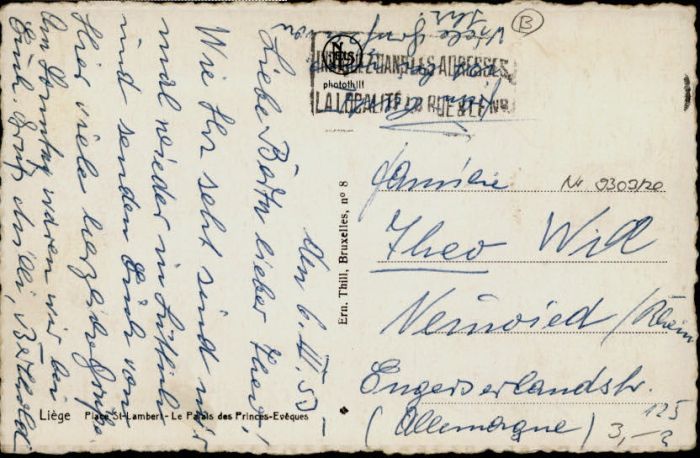 den 6. III. 53
Liebe Berta lieber Theo!
Wie Ihr seht sind wir
mal wieder in Lüttich
und senden Euch von
Hier viele herzliche Grüße
Am Sonntag waren wir bei
Berthold
Viele Grüße
NELS
photothill
INDIQUEZ DANS LES ADRESSES
LA LOCALITÉ LA RUE & LE No
B
Ern. Thill, Bruxelles, n° 8
Familie
Nr 9309/20
Theo Will
Neuwied / Rhein
Engerserlandstr.
125
(Allemagne)
3,—
Liège Place St-Lambert - Le Palais des Princes-Evêques